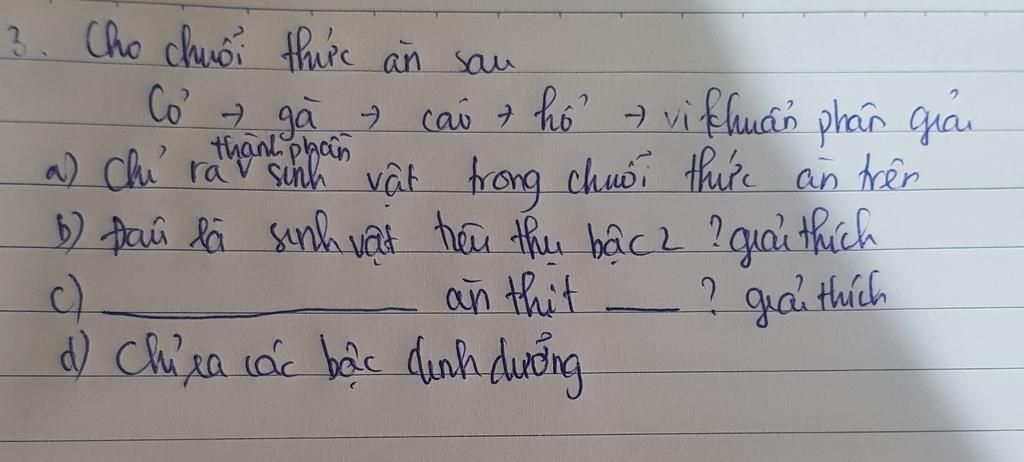 3. Cho chuỗi thức ăn sau
Cỏ → gà → cáo → hổ → vi khuẩn phân giải
a) Chỉ ra thành phần sinh vật trong chuỗi thức ăn trên
b) Đâu là sinh vật tiêu thụ bậc 2 ? giải thích
c) ____________ ăn thịt ____ ? giải thích
d) Chỉ ra các bậc dinh dưỡng